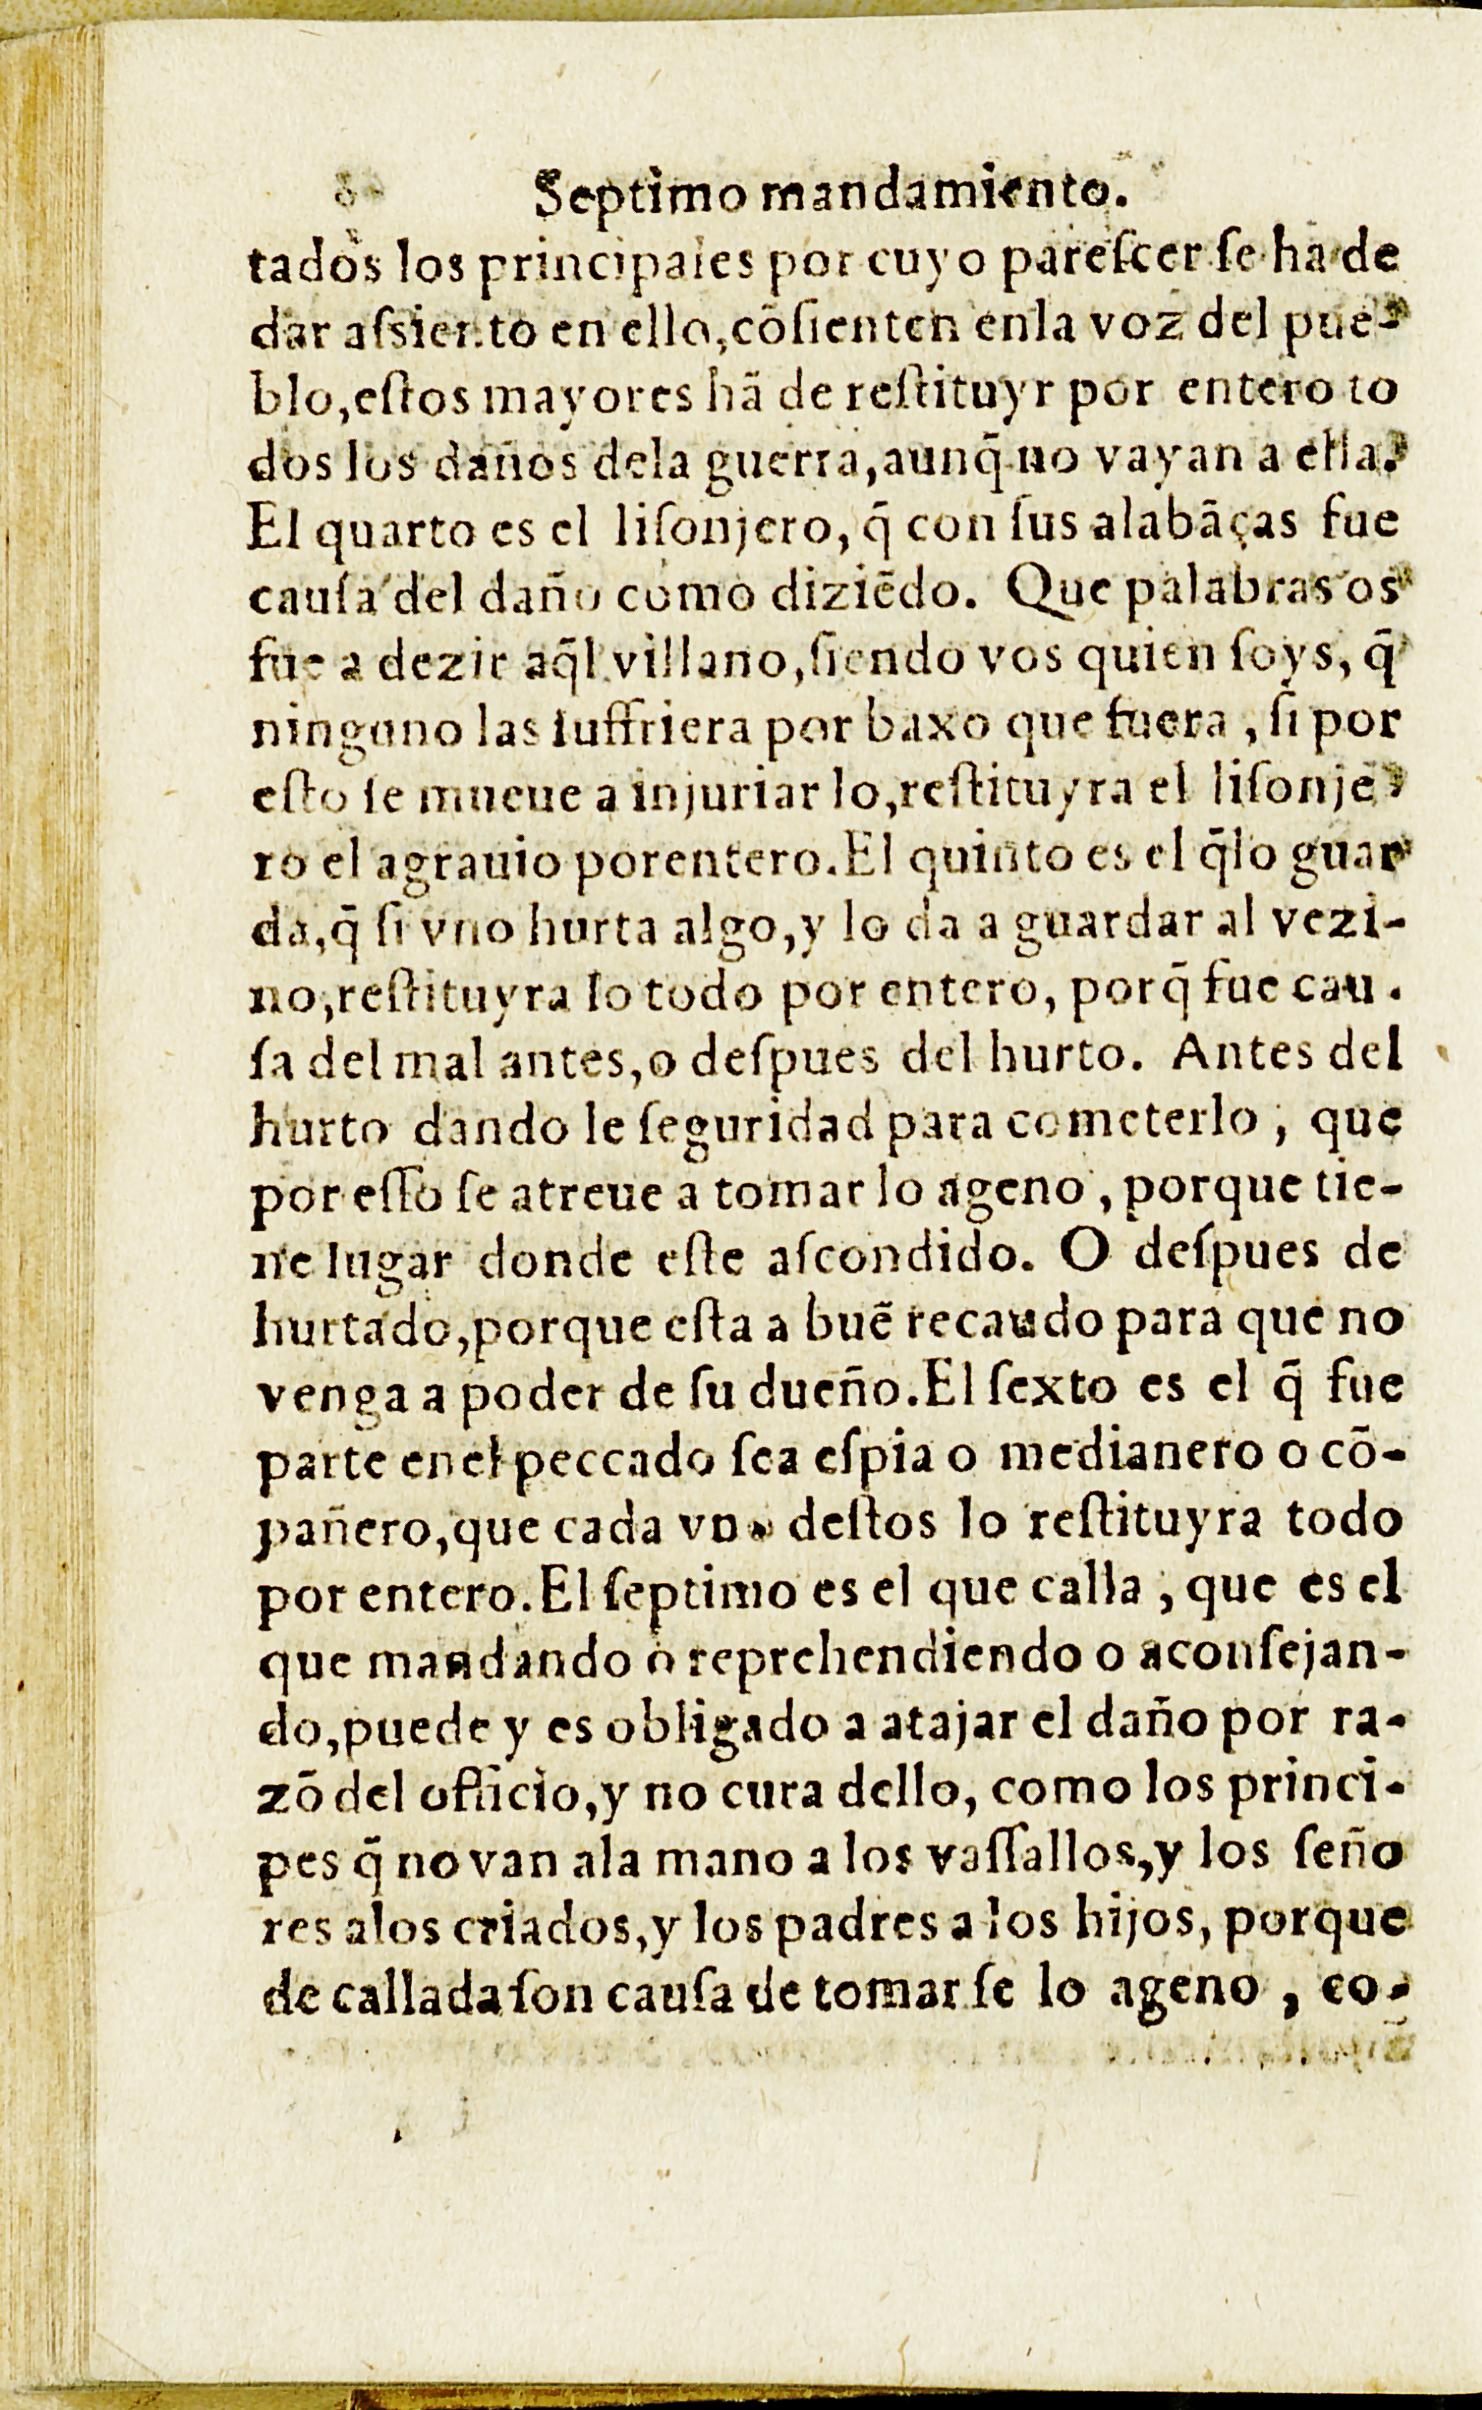 Septimo mandamiento.
tados los principales por cuyo pareſcer ſe ha de
dar aſsiento en ello,cõſienten enla voz del pue-
blo,eſtos mayores hã de reſtituyr por entero to
dos los daños dela guerra,aunq̃ no vayan a ella.
El quarto es el liſonjero, q̃ con ſus alabãças fue
cauſa del daño como diziẽdo. Que palabras os
fue a dezir aq̃l villano,ſiendo vos quien ſoys, q̃
ninguno las ſuffriera por baxo que fuera , ſi por
eſto ſe mueue a injuriar lo,reſtituyra el liſonje
ro el agrauio porentero.El quinto es el q̃lo guar
da,q̃ ſi vno hurta algo,y lo da a guardar al vezi-
no,reſtituyra lo todo por entero, porq̃ fue cau.
ſa del mal antes,o deſpues del hurto. Antes del
hurto dando le ſeguridad para cometerlo , que
por eſſo ſe atreue a tomar lo ageno , porque tie-
ne lugar donde eſte aſcondido. O deſpues de
hurtado,porque eſta a buẽ recaudo para que no
venga a poder de ſu dueño.El ſexto es el q̃ fue
parte enel peccado ſea eſpia o medianero o cõ-
pañero,que cada vno deſtos lo reſtituyra todo
por entero.El ſeptimo es el que calla , que es el
que mandando o reprehendiendo o aconſejan-
do,puede y es obligado a atajar el daño por ra-
zõ del officio,y no cura dello, como los princi-
pes q̃ no van ala mano a los vaſſallos,y los ſeño
res alos criados,y los padres a los hijos, porque
de callada ſon cauſa de tomar ſe lo ageno , co-